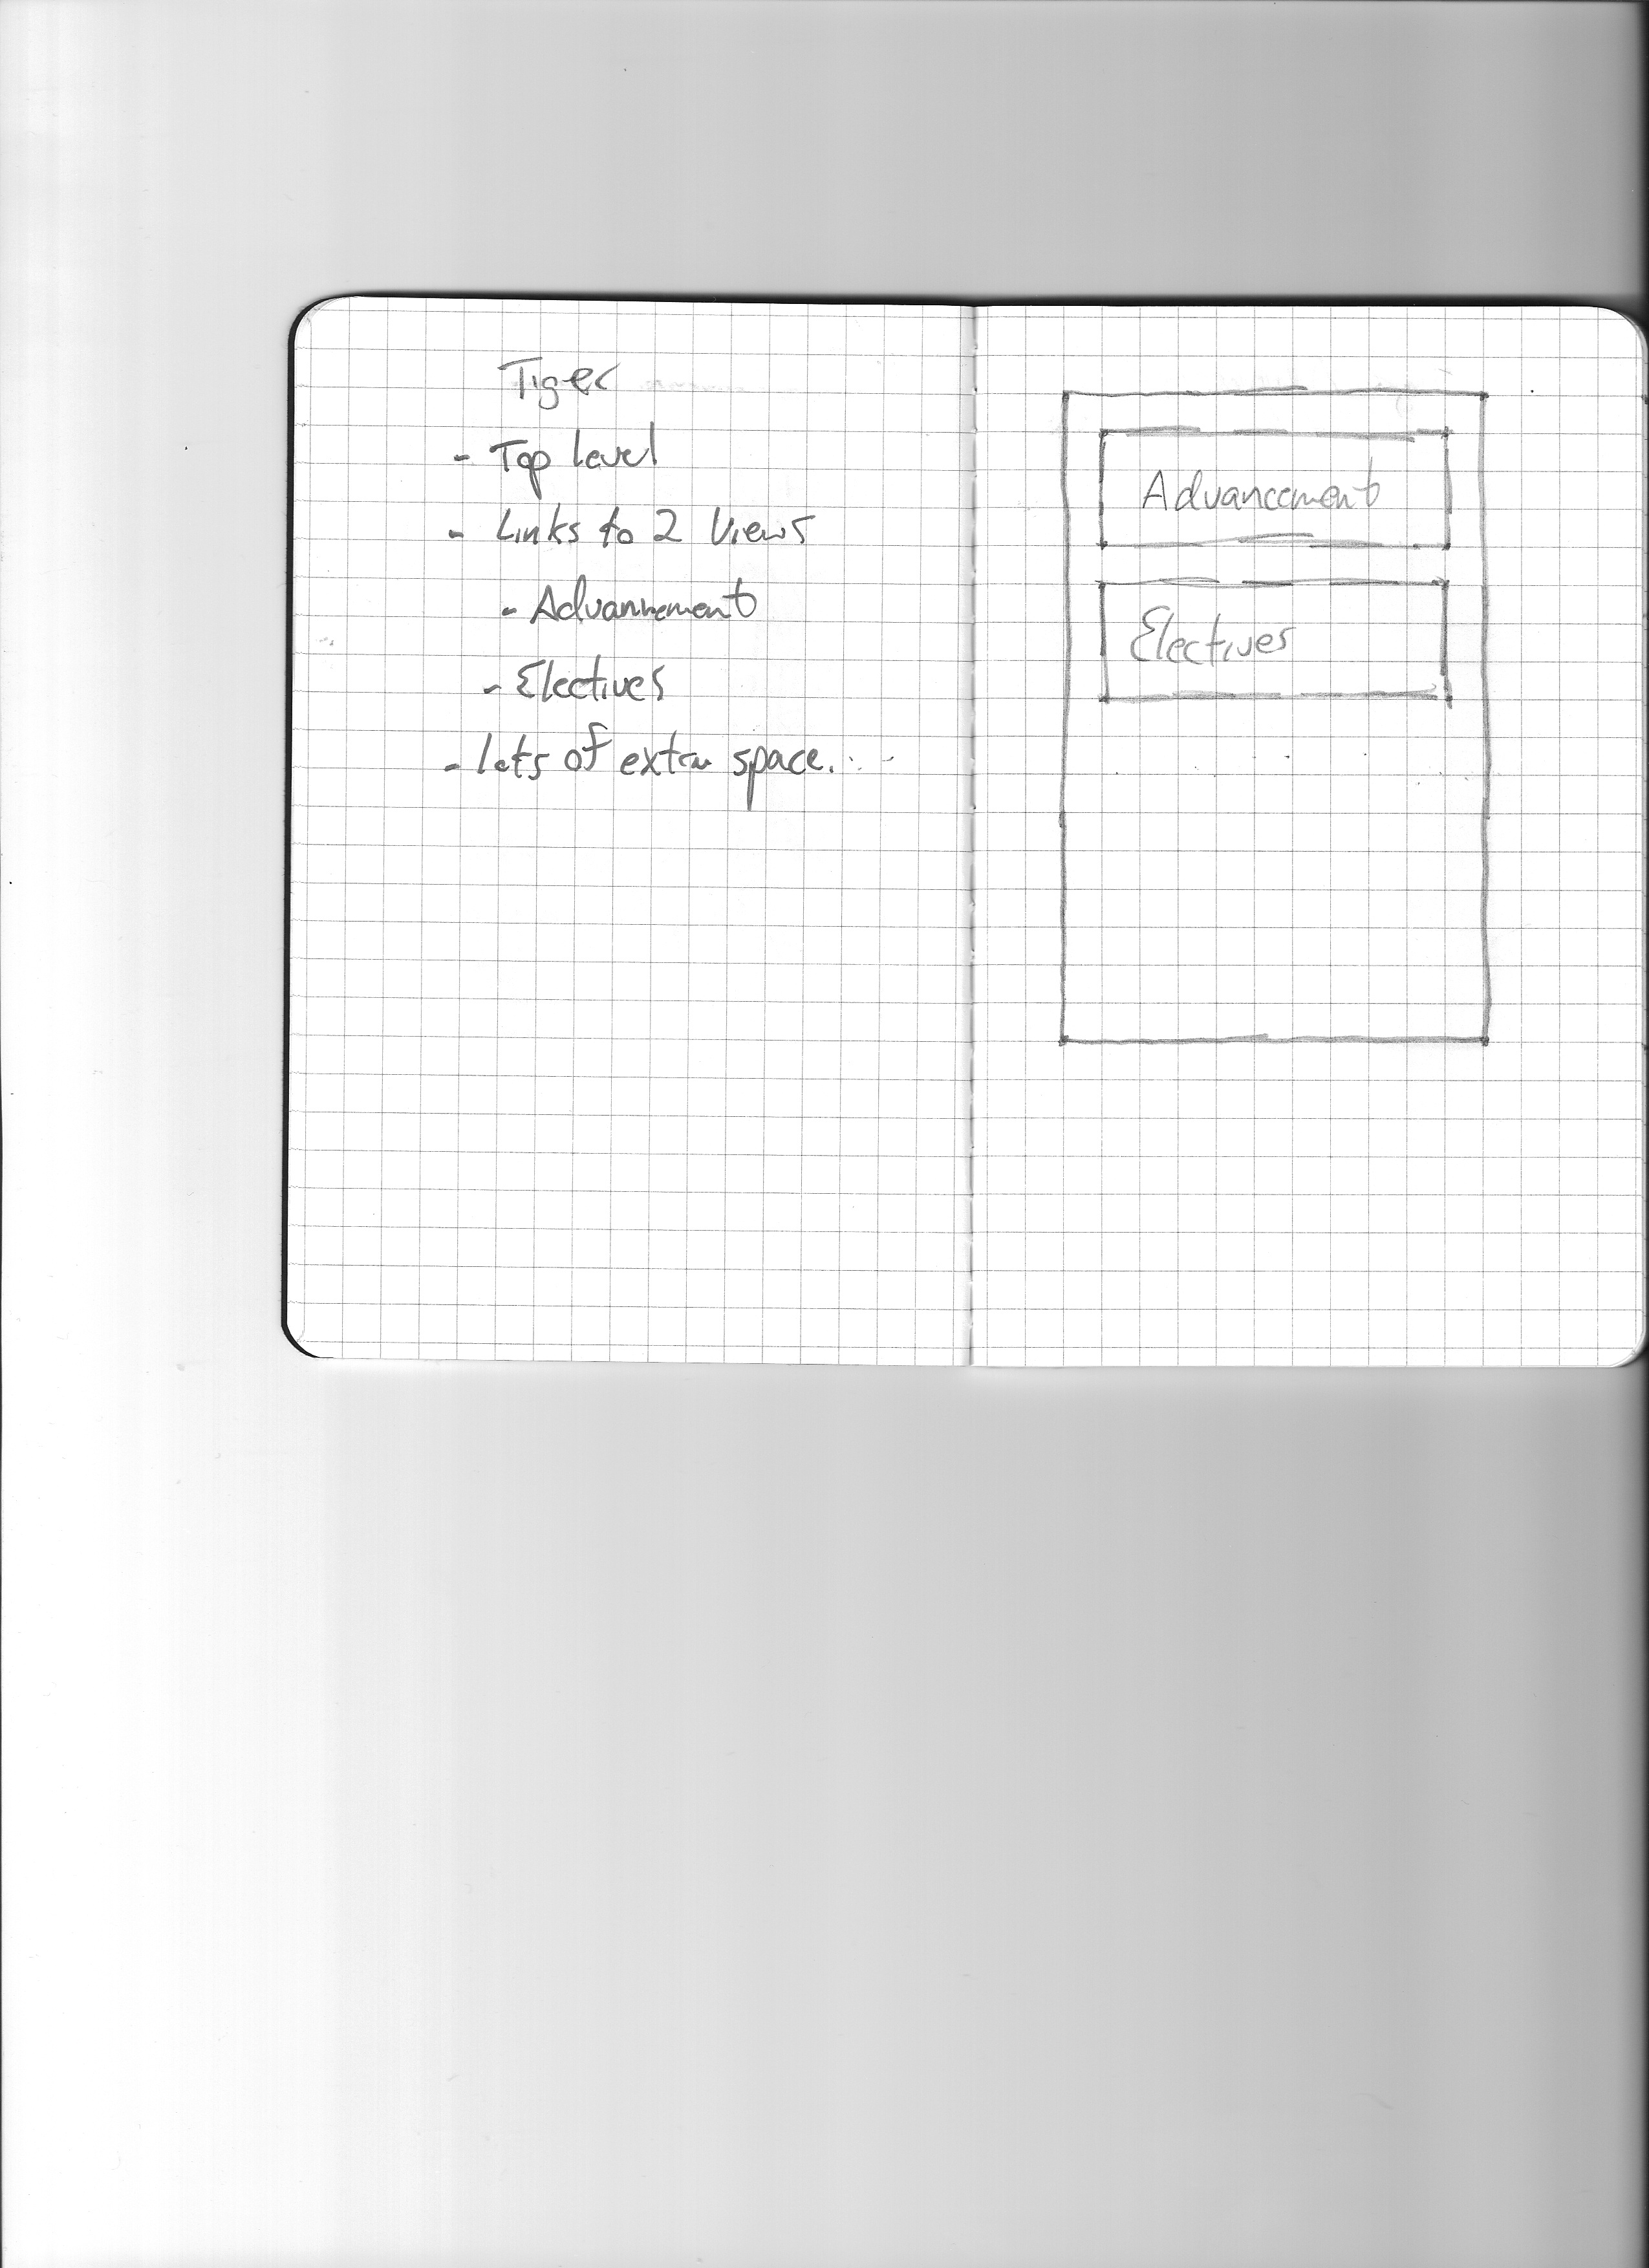 Tiger
- Top level
- Links to 2 Views
- Advancement
- Electives
- lots of extra space...
Advancement
Electives